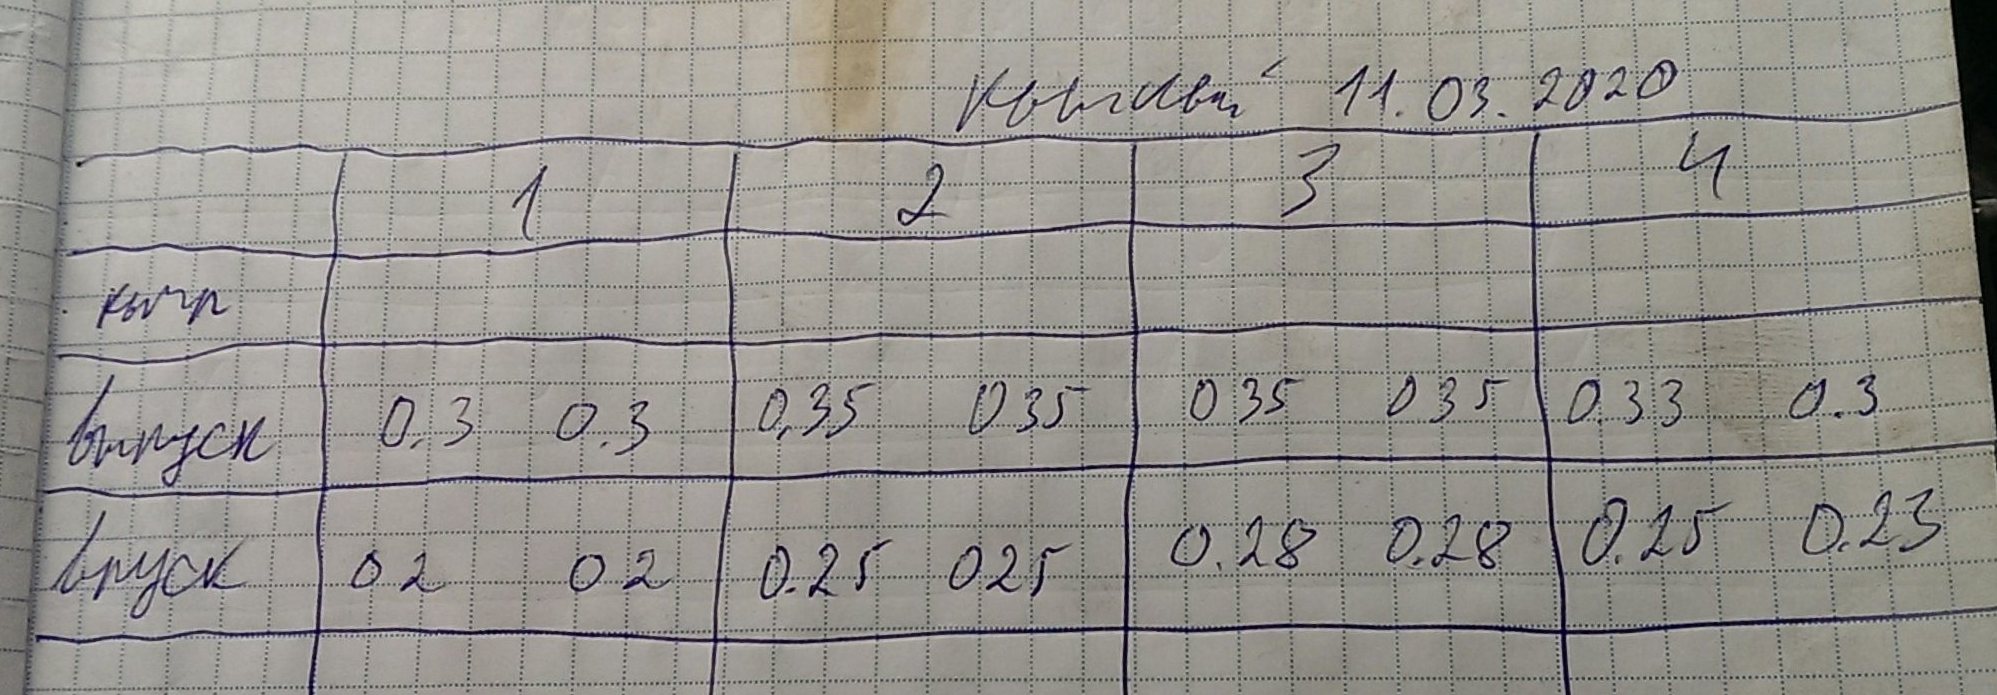 11.03.2020
1 2 3 4
выпуск 0.3 0.3 0,35 035 035 035 0.33 0.3
впуск 02 02 0.25 025 0.28 0.28 0.25 0.23